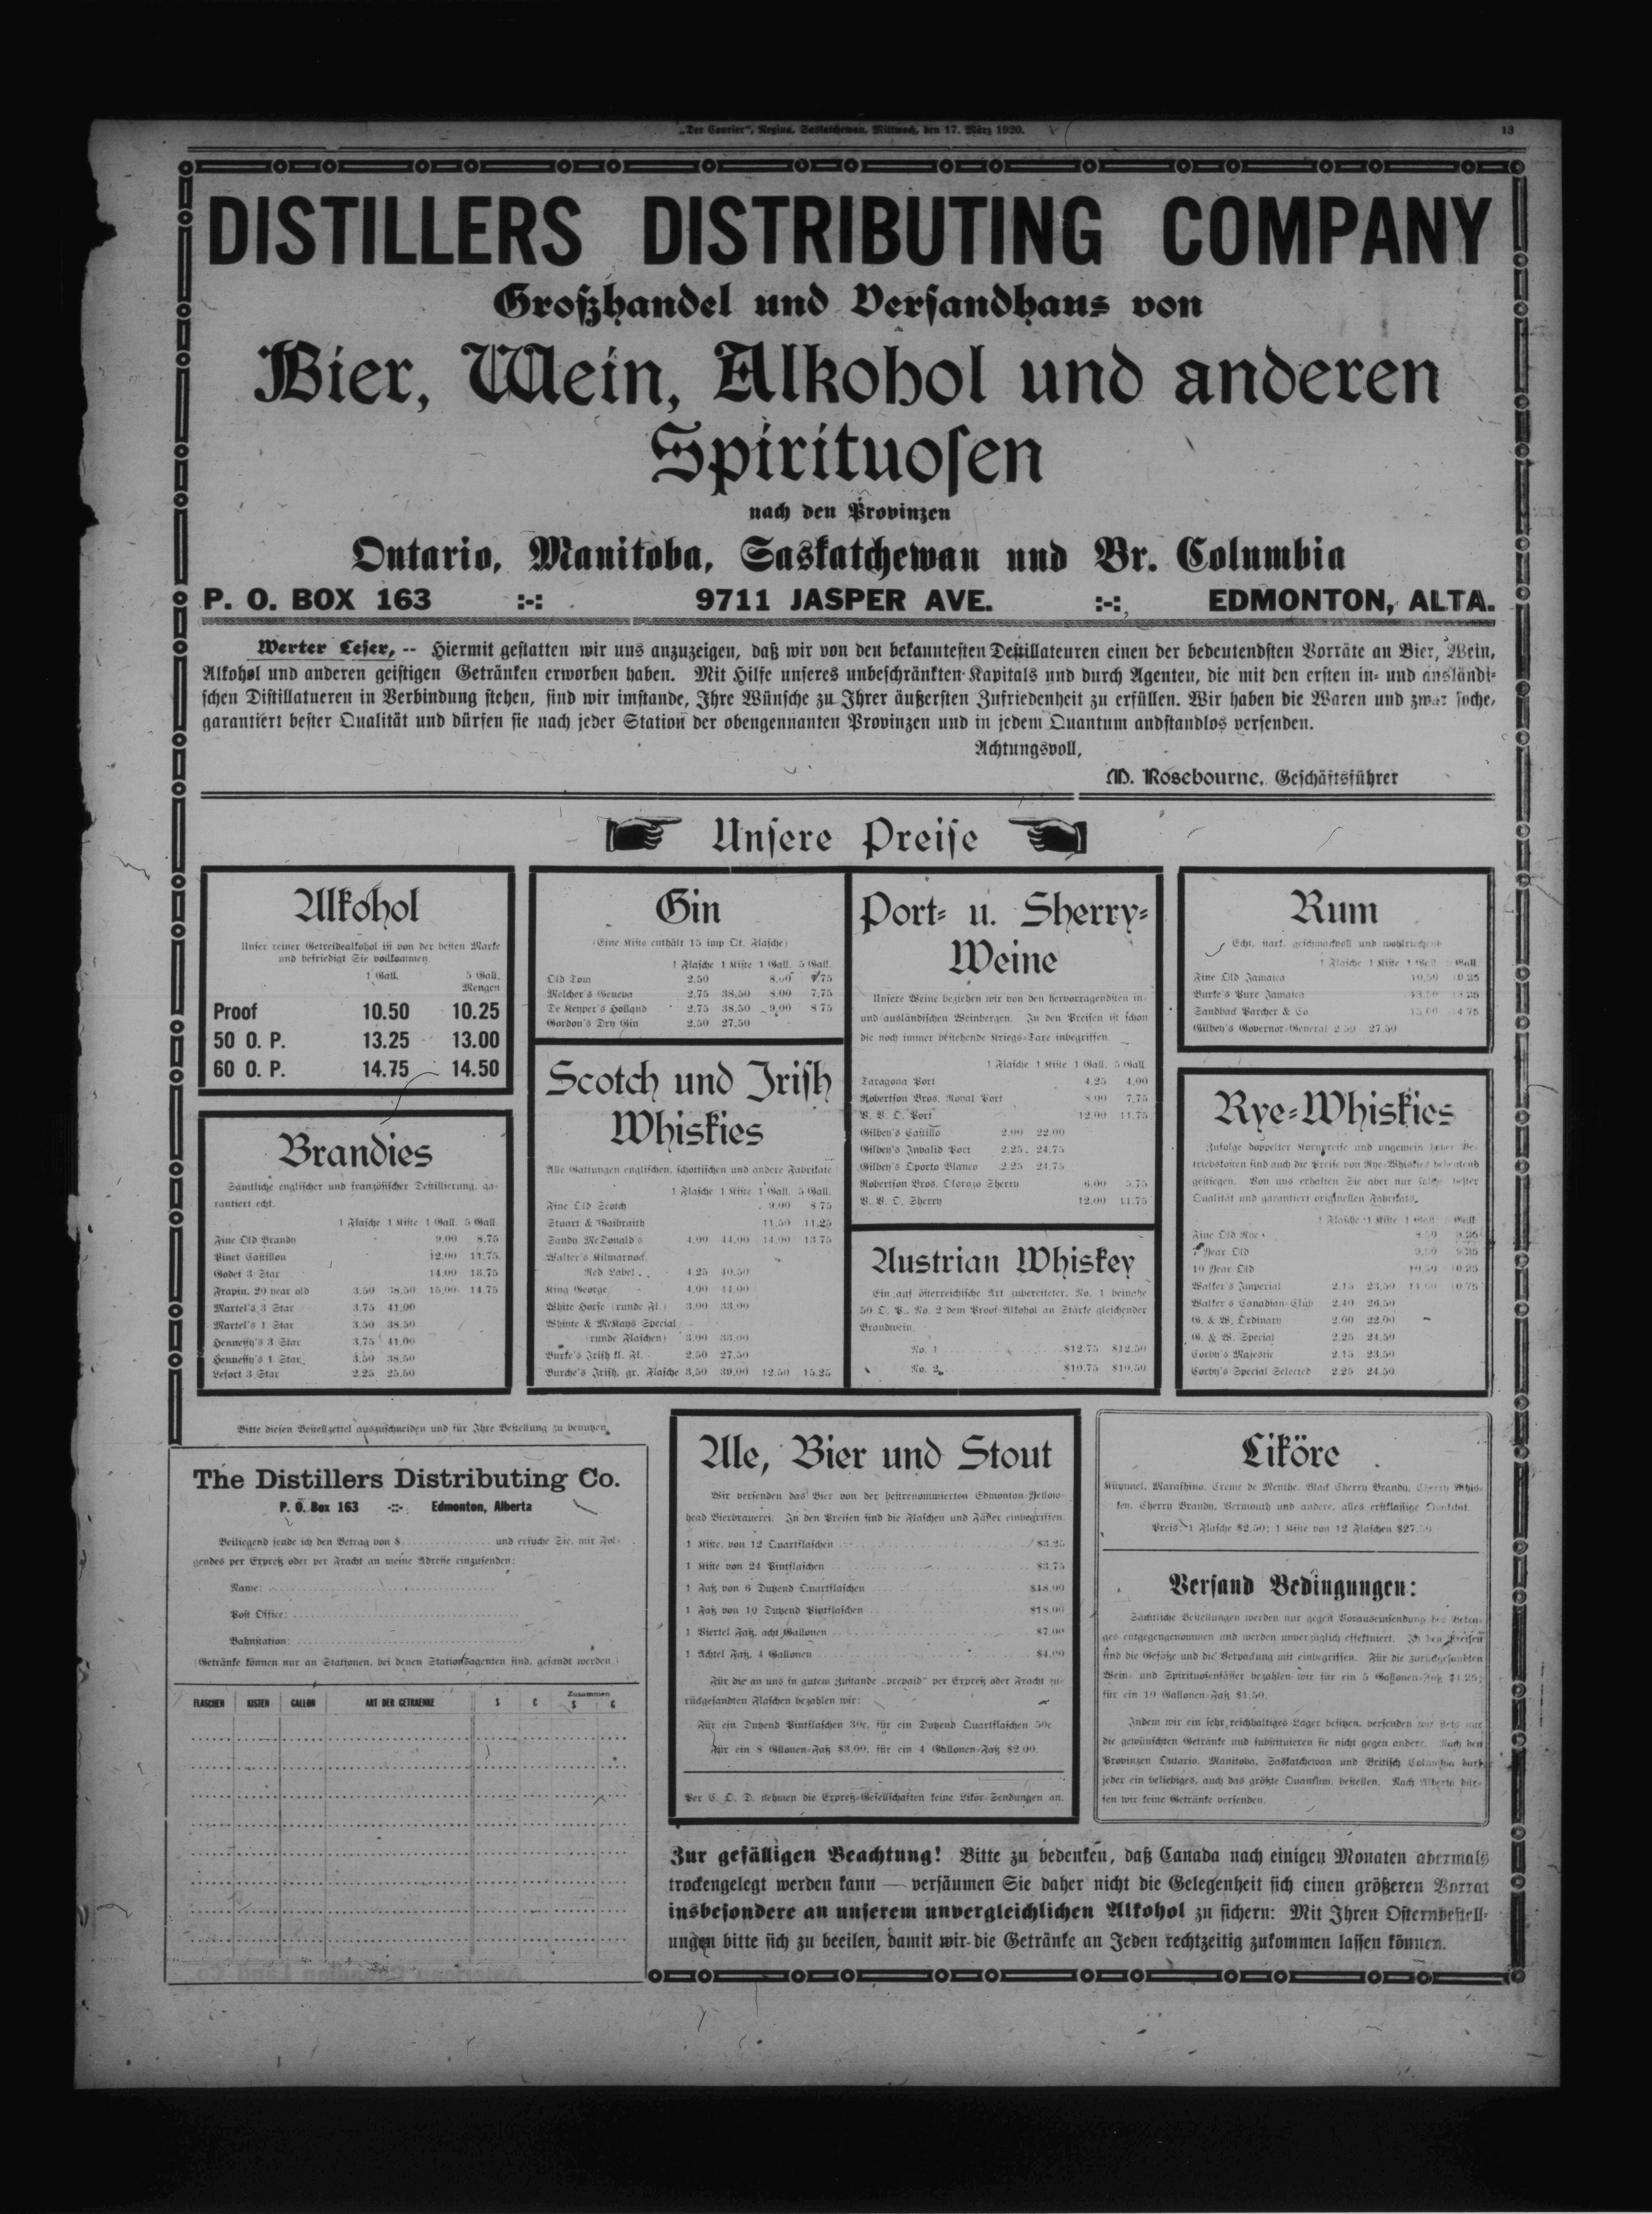 „Der Courier“, Regina, Saskatchewan, Mittwoch, den 17. März 1920.
13
DISTILLERS DISTRIBUTING COMPANY
Großhandel und Versandhaus von
Bier, Wein, Alkohol und anderen
Spirituosen
nach den Provinzen
Ontario, Manitoba, Saskatchewan und Br. Columbia
P. O. BOX 163 :-: 9711 JASPER AVE. :-: EDMONTON, ALTA.
Werter Leser, -- Hiermit gestatten wir uns anzuzeigen, daß wir von den bekanntesten Destillateuren einen der bedeutendsten Vorräte an Bier, Wein,
Alkohol und anderen geistigen Getränken erworben haben. Mit Hilfe unseres unbeschränkten Kapitals und durch Agenten, die mit den ersten in- und ausländi-
schen Distillatueren in Verbindung stehen, sind wir imstande, Ihre Wünsche zu Ihrer äußersten Zufriedenheit zu erfüllen. Wir haben die Waren und zwar soche,
garantiert bester Qualität und dürfen sie nach jeder Station der obengennanten Provinzen und in jedem Quantum andstandlos versenden.
Achtungsvoll,
M. Rosebourne, Geschäftsführer
Unsere Preise
Alkohol
Unser reiner Getreidealkohol ist von der besten Marke
und befriedigt Sie vollkommen.
1 Gall. 5 Gall.
Mengen
Proof 10.50 10.25
50 O. P. 13.25 13.00
60 O. P. 14.75 14.50
Brandies
Sämtliche englischer und französischer Destillierung, ga-
rantiert echt.
1 Flasche 1 Kiste 1 Gall. 5 Gall.
Fine Old Brandy 9.00 8.75
Pinet Castillon 12.00 11.75
Godet 3 Star 14.00 13.75
Frapin, 20 year old 3.50 38.50 15.00 14.75
Martel's 3 Star 3.75 41.00
Martel's 1 Star 3.50 38.50
Hennessy's 3 Star 3.75 41.00
Hennessy's 1 Star 3.50 38.50
Lesort 3 Star 2.25 25.50
Gin
(Eine Kiste enthält 15 imp Qt. Flasche)
1 Flasche 1 Kiste 1 Gall. 5 Gall.
Old Tom 2.50 8.00 7.75
Melcher's Geneva 2.75 38.50 8.00 7.75
De Keyper's Holland 2.75 38.50 9.00 8.75
Gordon's Dry Gin 2.50 27.50
Scotch und Irish
Whiskies
Alle Gattungen englischen, schottischen und andere Fabrikate
1 Flasche 1 Kiste 1 Gall. 5 Gall.
Fine Old Scotch 9.00 8.75
Stuart & Galbraith 11.50 11.25
Sandy McDonald's 4.00 44.00 14.00 13.75
Walter's Kilmarnock
Red Label 4.25 40.50
King George 4.00 44.00
White Horse (runde Fl.) 3.00 33.00
Whinte & McKays Special
(runde Flaschen) 3.00 33.00
Burke's Irish kl. Fl. 2.50 27.50
Burche's Irish, gr. Flasche 3.50 39.00 12.50 15.25
Port- u. Sherry-
Weine
Unsere Weine beziehen wir von den hervorragendsten in-
und ausländischen Weinbergen. In den Preisen ist schon
die noch immer bestehende Kriegs-Taxe inbegriffen.
1 Flasche 1 Kiste 1 Gall. 5 Gall.
Taragona Port 4.25 4.00
Robertson Bros. Royal Port 8.00 7.75
V. V. O. Port 12.00 11.75
Gilbey's Castillo 2.00 22.00
Gilbey's Invalid Port 2.25 24.75
Gilbey's Oporto Blanco 2.25 24.75
Robertson Bros. Olorozo Sherry 6.00 5.75
V. V. O. Sherry 12.00 11.75
Austrian Whiskey
Ein auf österreichische Art zubereiteter, No. 1 beinahe
50 O. P., No. 2 dem Proof-Alkohol an Stärke gleichender
Brandwein.
No. 1 $12.75 $12.50
No. 2 $10.75 $10.50
Rum
Echt, stark, geschmackvoll und wohlriechend
1 Flasche 1 Kiste 1 Gall. 5 Gall.
Fine Old Jamaica 10.50 10.25
Burke's Pure Jamaica 13.50 13.25
Sandbach Parcher & Co. 15.00 14.75
Gilbey's Governor-General 2.50 27.50
Rye-Whiskies
Zufolge doppelter Kornpreise und ungemein hoher Be-
triebskosten sind auch die Preise von Rye-Whiskies bedeutend
gestiegen. Von uns erhalten Sie aber nur solche bester
Qualität und garantiert originellen Fabrikats.
1 Flasche 1 Kiste 1 Gall. 5 Gall.
Fine Old Rye
7 Year Old
10 Year Old 10.50 10.25
Walker's Imperial 2.15 23.50 11.00 10.75
Walker's Canadian-Club 2.40 26.50
G. & W. Ordinary 2.00 22.00
G. & W. Special 2.25 24.50
Corby's Majestic 2.15 23.50
Corby's Special Selected 2.25 24.50
Bitte diesen Bestellzettel auszuschneiden und für Ihre Bestellung zu benutzen.
The Distillers Distributing Co.
P. O. Box 163 -::- Edmonton, Alberta
Beiliegend sende ich den Betrag von $ und ersuche Sie, mir Fol-
gendes per Expreß oder per Fracht an meine Adresse einzusenden:
Name:
Post Office:
Bahnstation:
(Getränke können nur an Stationen, bei denen Stationsagenten sind, gesandt werden.)
FLASCHEN KISTEN GALLON ART DER GETRAENKE $ C Zusammen $ C
Ale, Bier und Stout
Wir versenden das Bier von der bestrenommierten Edmonton Yellow-
head Bierbrauerei. In den Preisen sind die Flaschen und Fässer einbegriffen.
1 Kiste, von 12 Quartflaschen $3.25
1 Kiste von 24 Pintflaschen $3.75
1 Faß von 6 Dutzend Quartflaschen $18.00
1 Faß von 10 Dutzend Pintflaschen $18.00
1 Viertel Faß, acht Gallonen $7.00
1 Achtel Faß, 4 Gallonen $4.00
Für die an uns in gutem Zustande „prepaid“ per Expreß oder Fracht zu-
rückgesandten Flaschen bezahlen wir:
Für ein Dutzend Pintflaschen 30c, für ein Dutzend Quartflaschen 50c
Für ein 8 Gllonen-Faß $3.00, für ein 4 Gallonen-Faß $2.00.
Per C. O. D. nehmen die Expreß-Gesellschaften keine Likör-Sendungen an.
Liköre
Kümmel, Marashino, Creme de Menthe, Black Cherry Brandy, Cherry Whis-
key, Cherry Brandy, Vermouth und andere, alles erstklassige Qualität.
Preis: 1 Flasche $2.50; 1 Kiste von 12 Flaschen $27.50
Versand Bedingungen:
Sämtliche Bestellungen werden nur gegen Vorauseinsendung des Betra-
ges entgegengenommen und werden unverzüglich effektuiert. In den Preisen
sind die Gefäße und die Verpackung mit einbegriffen. Für die zurückgesandten
Wein- und Spirituosenfässer bezahlen wir für ein 5 Gallonen-Faß $1.25;
für ein 10 Gallonen-Faß $1.50.
Indem wir ein sehr reichhaltiges Lager besitzen, versenden wir stets nur
die gewünschten Getränke und substituieren sie nicht gegen andere. Nach den
Provinzen Ontario, Manitoba, Saskatchewan und Britisch Columbia darf
jeder ein beliebiges, auch das größte Quantum, bestellen. Nach Alberta dür-
fen wir keine Getränke versenden.
Zur gefälligen Beachtung! Bitte zu bedenken, daß Canada nach einigen Monaten abermals
trockengelegt werden kann — versäumen Sie daher nicht die Gelegenheit sich einen größeren Vorrat
insbesondere an unserem unvergleichlichen Alkohol zu sichern: Mit Ihren Osternbestell-
ungen bitte sich zu beeilen, damit wir die Getränke an Jeden rechtzeitig zukommen lassen können.